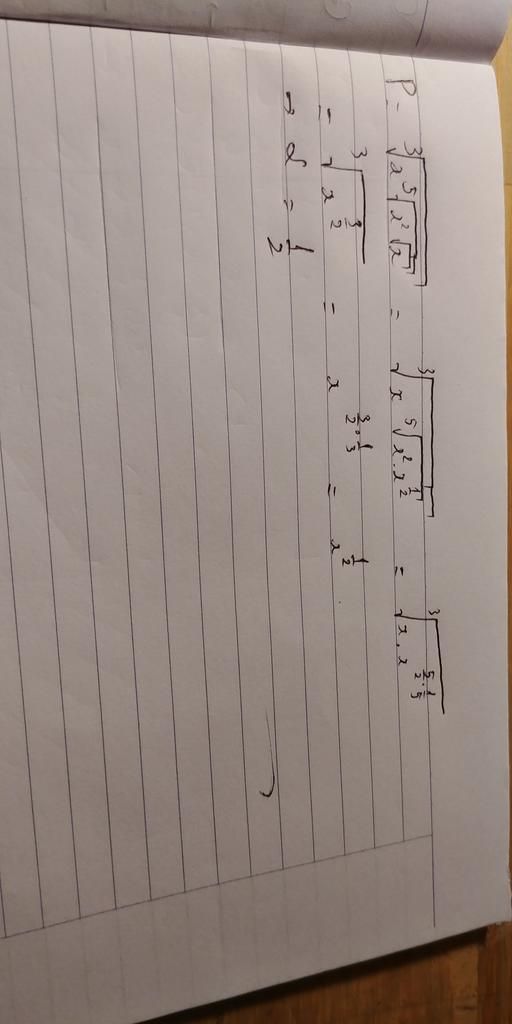 P = ∛(x ⁵√(x² √x)) = ∛(x ⁵√(x² . x^(1/2))) = ∛(x . x^(5/2 . 1/5))
= ∛(x^(3/2)) = x^(3/2 . 1/3) = x^(1/2)
→ α = 1/2